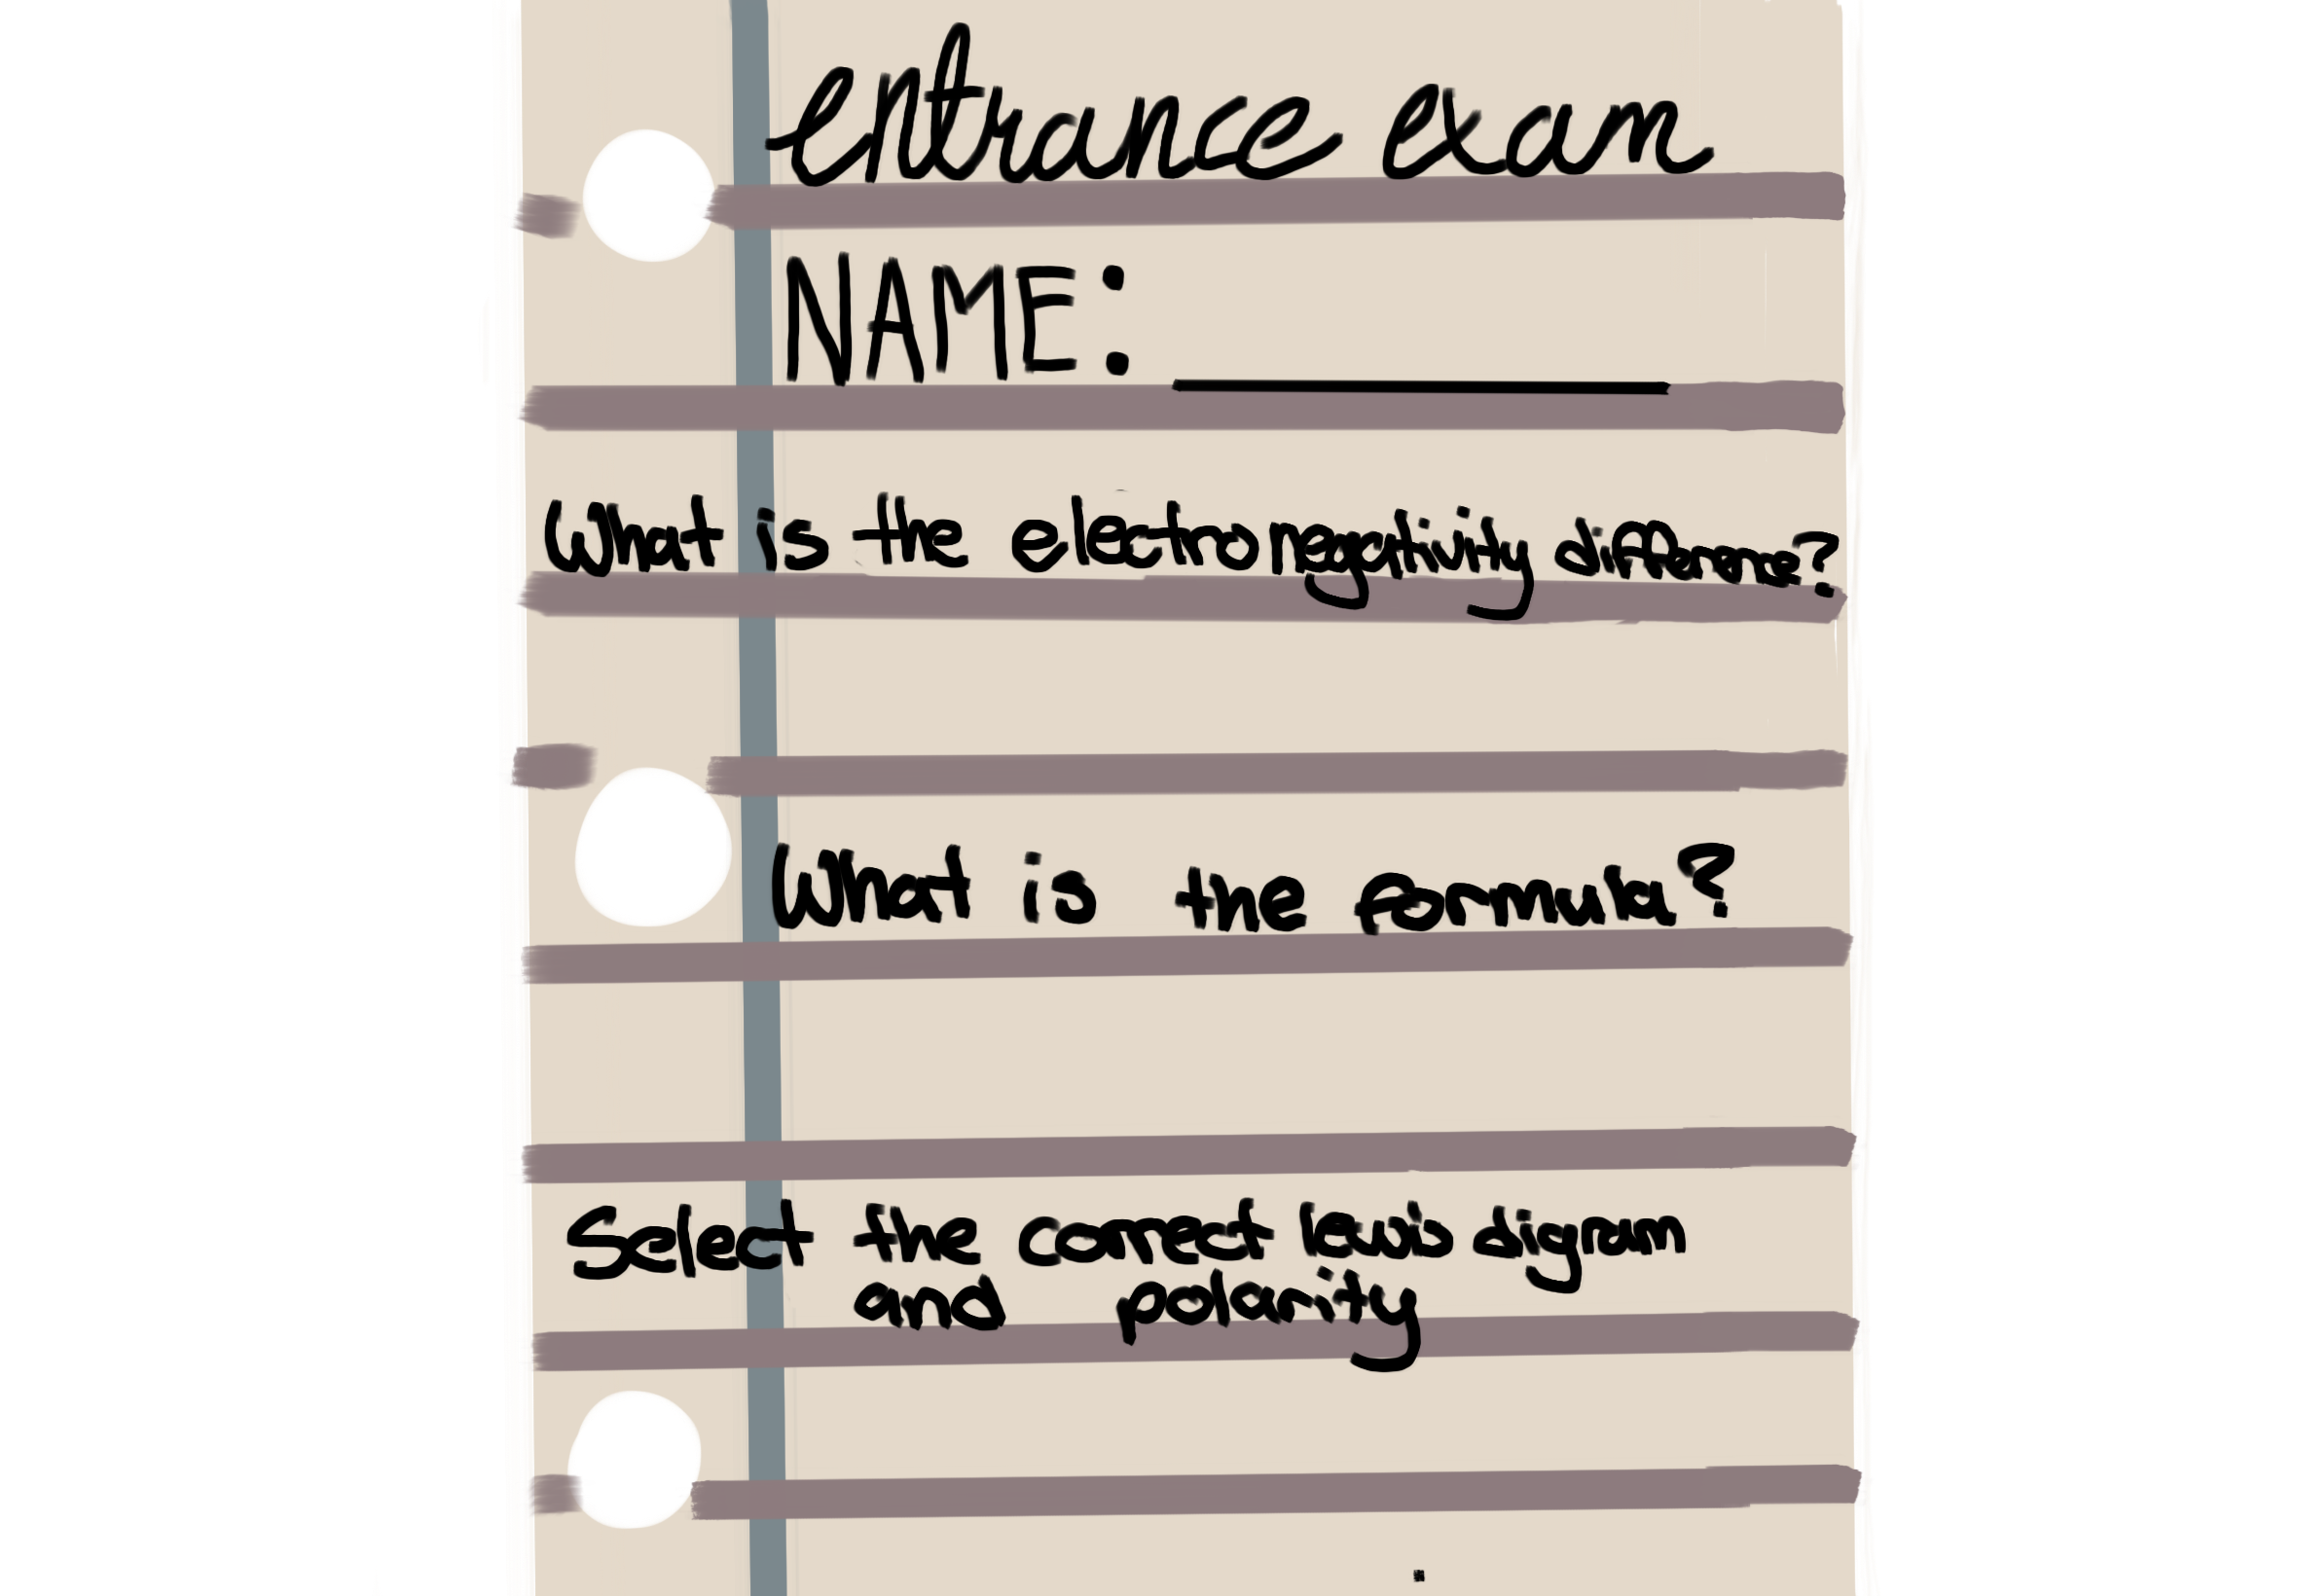 entrance exam
NAME:
What is the electronegativity difference?
What is the formula?
Select the correct lewis digram
and polarity